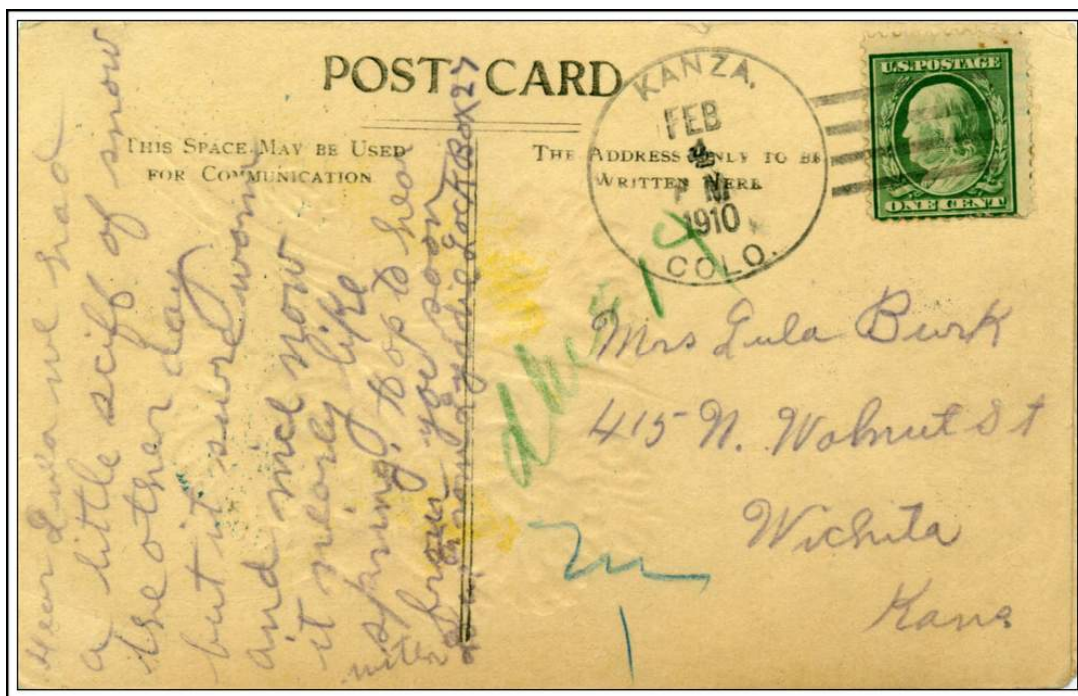 POST CARD
THIS SPACE MAY BE USED
FOR COMMUNICATION
THE ADDRESS ONLY TO BE
WRITTEN HERE
KANZA,
FEB
4
M
1910
COLO.
U.S. POSTAGE
ONE CENT
Dear Lula we had
a little sciff of snow
the other day
but it sure warm
and nice now
it nearly like
spring. hop to hear
from you soon
Lock Box 27
Mrs Lula Burk
415 N. Walnut St
Wichita
Kans